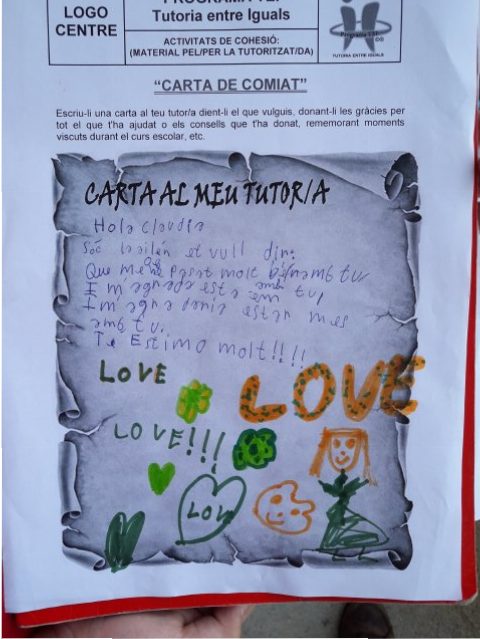 LOGO
CENTRE
PROGRAMA TEI
Tutoria entre Iguals
ACTIVITATS DE COHESIÓ:
(MATERIAL PEL/PER LA TUTORITZAT/DA)
Programa TEI
TUTORIA ENTRE IGUALS
“CARTA DE COMIAT”
Escriu-li una carta al teu tutor/a dient-li el que vulguis, donant-li les gràcies per
tot el que t'ha ajudat o els consells que t'ha donat, rememorant moments
viscuts durant el curs escolar, etc.
CARTA AL MEU TUTOR/A
Hola Claudia
Sóc et vull dir:
Que me he pasat molt bé amb tu,
I m'agrada esta amb tu,
I m'agradaria estar mes
amb tu.
Te Estimo molt!!!!
LOVE
LOVE
LOVE!!!
LOV